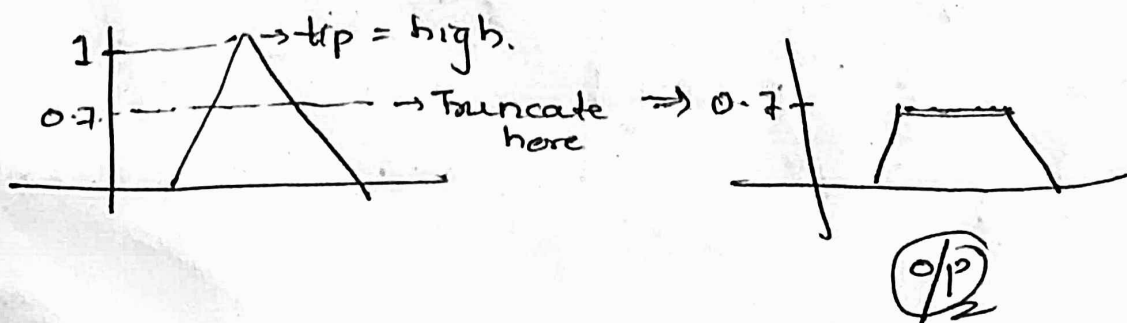 1 → tip = high.
0.7 → Truncate here ⇒ 0.7
O/P
2